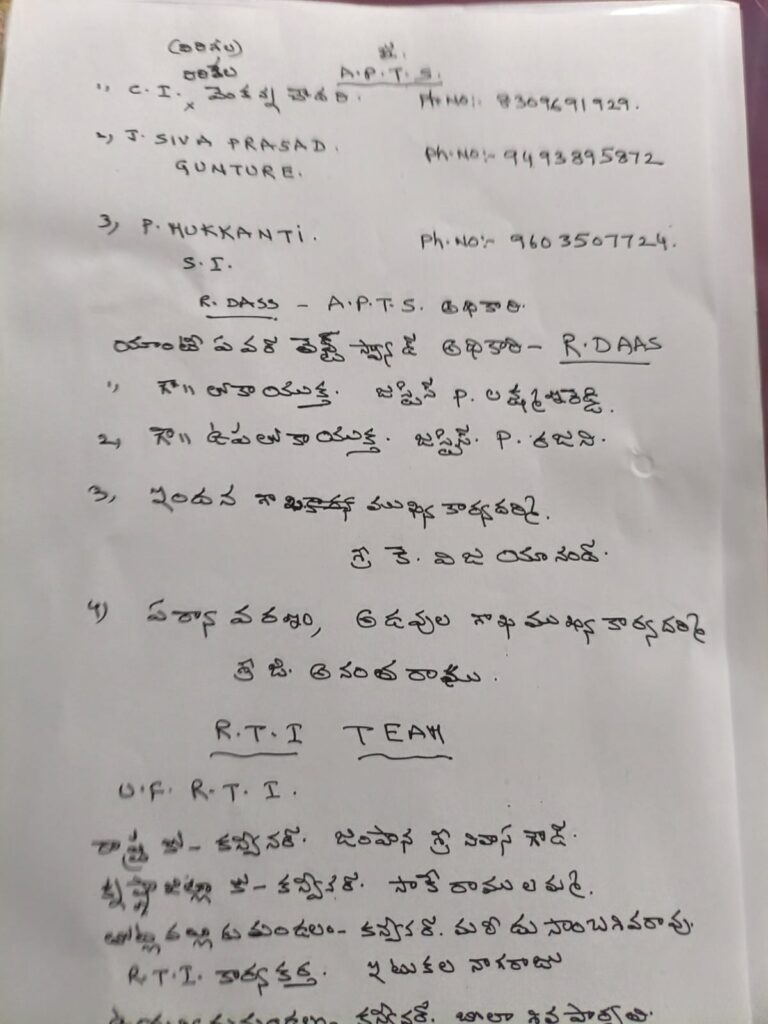 A.P.T.S.
1) C.I. వెంకన్న చౌదరి. PH.NO:- 8309691929.
2) J. SIVA PRASAD. Ph.NO:- 9493895872
GUNTURE.
3) P. MUKKANTI. Ph.NO:- 9603507724.
S.I.
R.DASS - A.P.T.S. అధికారి.
అధికారి- R.DAAS
1) గౌ॥ లోకాయుక్త. జస్టిస్ P. లక్ష్మణరెడ్డి.
2) గౌ॥ ఉపలోకాయుక్త. జస్టిస్. P. రజని.
3, ఇందన శాఖ ముఖ్య కార్యదర్శి.
శ్రీ కె. విజయానంద్.
4) పర్యావరణం, అడవుల శాఖ ముఖ్య కార్యదర్శి
శ్రీ జి. అనంత రాము.
R.T.I TEAM
U.F. R.T.I.
రాష్ట్ర కో- కన్వీనర్. జంపాన శ్రీనివాస గౌడ్.
కృష్ణాజిల్లా కో- కన్వీనర్. సాకే రాములమ్మ.
మండలం- కన్వీనర్. మరీదు సాంబశివరావు.
R.T.I. కార్యకర్త. ఇటుకల నాగరాజు
కన్వీనర్. బాలా శివ పార్వతి.